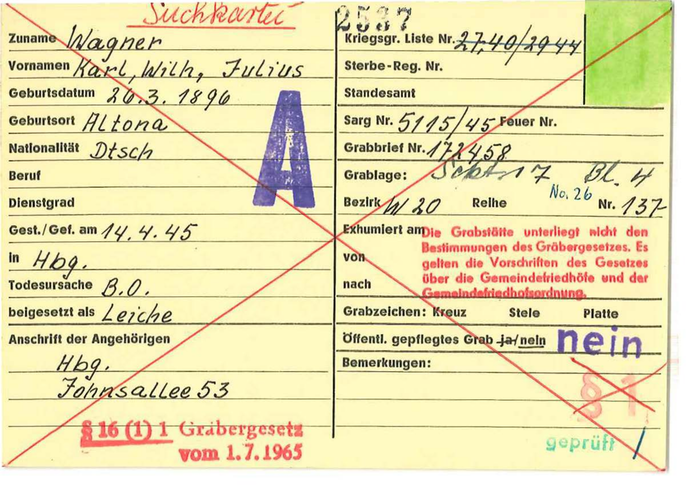 Suchkartei
2537
Zuname Wagner
Vornamen Karl, Wilh, Julius
Geburtsdatum 26.3.1896
Geburtsort Altona
Nationalität Dtsch
Beruf
Dienstgrad
Gest./Gef. am 14.4.45
in Hbg.
Todesursache B.O.
beigesetzt als Leiche
Anschrift der Angehörigen
Hbg.
Johnsallee 53
§ 16 (1) 1 Gräbergesetz
vom 1.7.1965
A
Kriegsgr. Liste Nr. 27,40/2944
Sterbe-Reg. Nr.
Standesamt
Sarg Nr. 5115/45 Feuer Nr.
Grabbrief Nr. 172458
Grablage: 7 Bl. 4
No. 26
Bezirk W 20 Reihe Nr. 137
Exhumiert am
von
nach
Die Grabstätte unterliegt nicht den
Bestimmungen des Gräbergesetzes. Es
gelten die Vorschriften des Gesetzes
über die Gemeindefriedhöfe und der
Gemeindefriedhofsordnung.
Grabzeichen: Kreuz Stele Platte
Öffentl. gepflegtes Grab ja/nein nein
Bemerkungen:
§ 1
geprüft